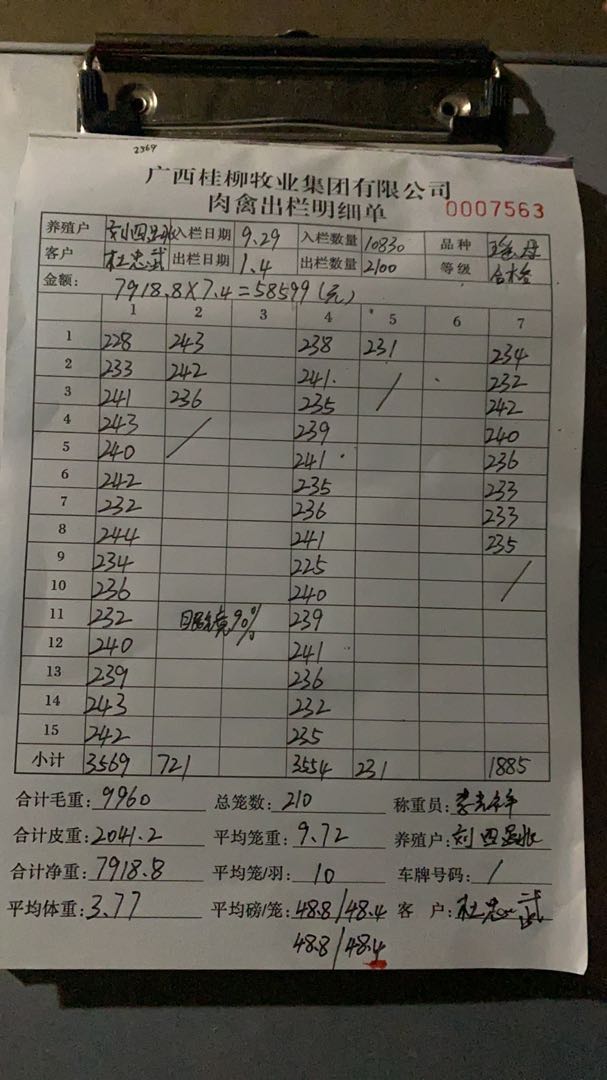 2369
广西桂柳牧业集团有限公司
肉禽出栏明细单 0007563
养殖户 入栏日期 9.29 入栏数量 10830 品种
客户 杜忠武 出栏日期 1.4 出栏数量 2100 等级 合格
金额: 7918.8×7.4=58599(元)
1 2 3 4 5 6 7
1 228 243 238 231 234
2 233 242 241. / 232
3 241 236 235 242
4 243 / 239 240
5 240 241 236
6 242 235 233
7 232 236 233
8 244 241 235
9 234 225 /
10 236 240
11 232 90% 239
12 240 241
13 239 236
14 243 232
15 242 235
小计 3569 721 3554 231 1885
合计毛重: 9960 总笼数: 210 称重员:
合计皮重: 2041.2 平均笼重: 9.72 养殖户:
合计净重: 7918.8 平均笼/羽: 10 车牌号码: /
平均体重: 3.77 平均磅/笼: 48.8/48.4 客 户: 杜忠武
48.8/48.4